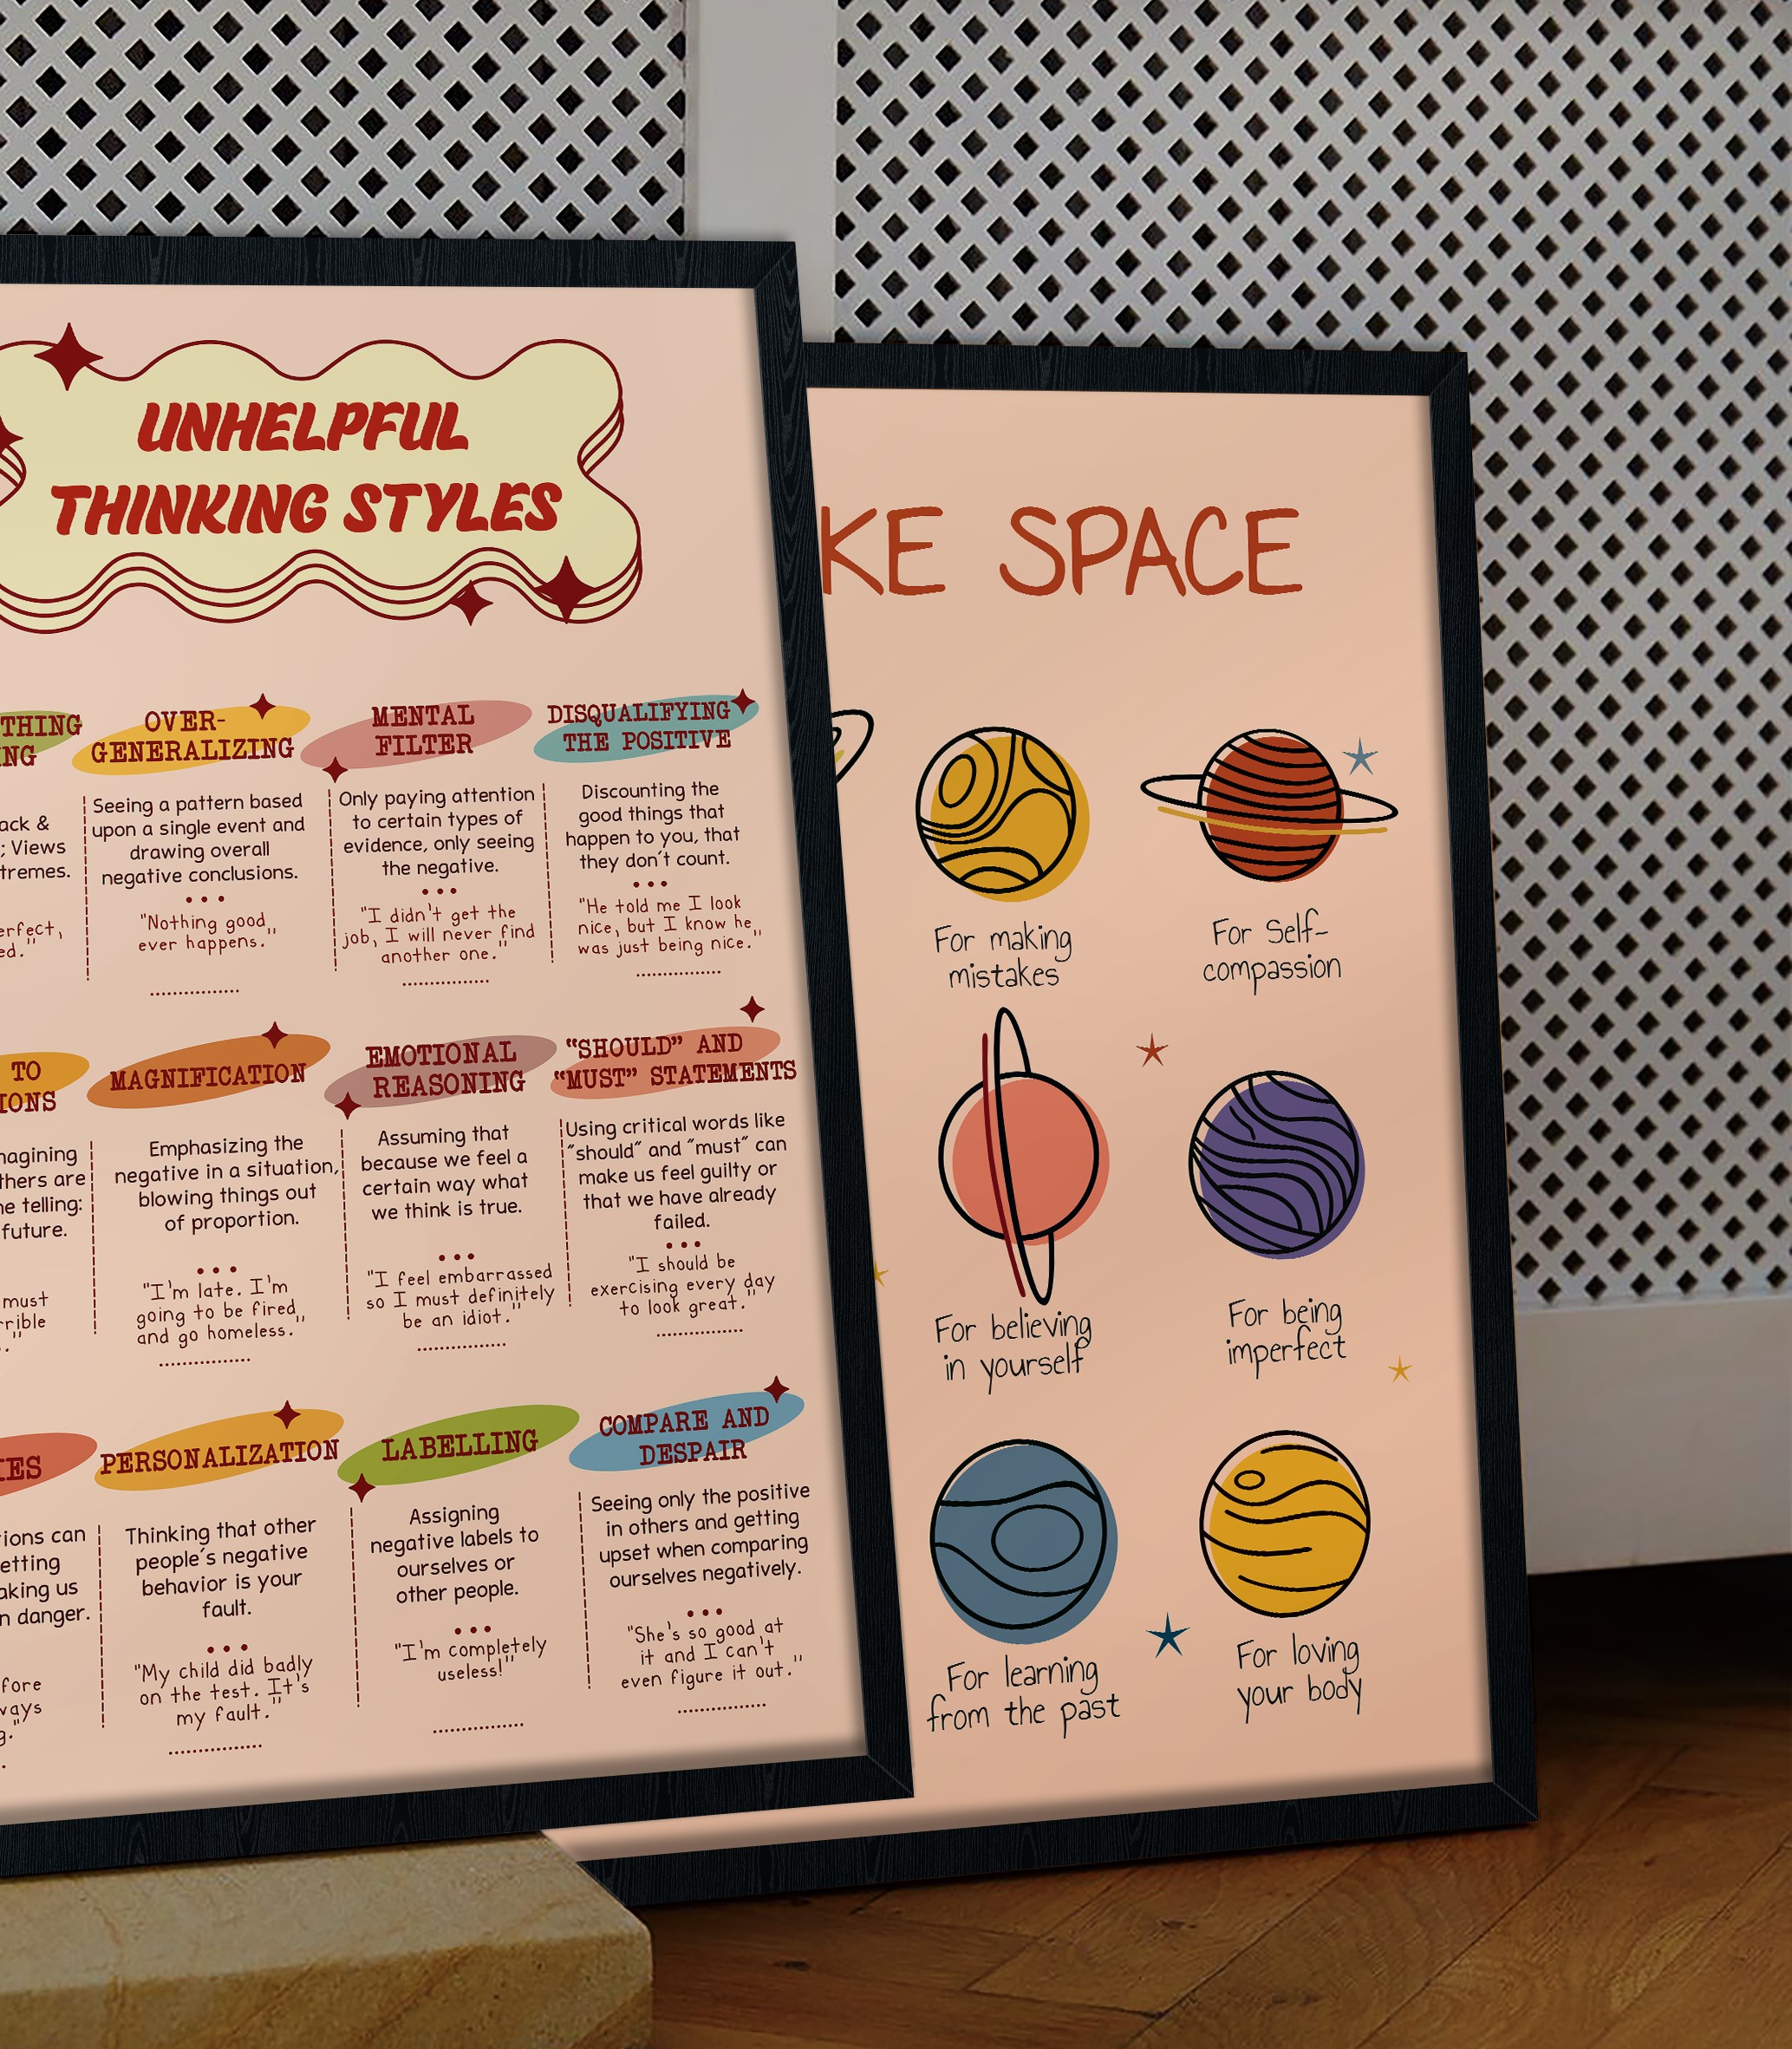 UNHELPFUL
THINKING STYLES
THING
NG
ack &
; Views
tremes.
erfect,
ed."
OVER-
GENERALIZING
Seeing a pattern based
upon a single event and
drawing overall
negative conclusions.
"Nothing good
ever happens."
MENTAL
FILTER
Only paying attention
to certain types of
evidence, only seeing
the negative.
"I didn't get the
job, I will never find
another one."
DISQUALIFYING
THE POSITIVE
Discounting the
good things that
happen to you, that
they don't count.
"He told me I look
nice, but I know he
was just being nice."
TO
IONS
nagining
thers are
ne telling:
future.
must
rrible
."
MAGNIFICATION
Emphasizing the
negative in a situation,
blowing things out
of proportion.
"I'm late. I'm
going to be fired
and go homeless."
EMOTIONAL
REASONING
Assuming that
because we feel a
certain way what
we think is true.
"I feel embarrassed
so I must definitely
be an idiot."
“SHOULD” AND
“MUST” STATEMENTS
Using critical words like
"should" and "must" can
make us feel guilty or
that we have already
failed.
"I should be
exercising every day
to look great."
IES
ions can
etting
aking us
n danger.
fore
ways
g."
PERSONALIZATION
Thinking that other
people's negative
behavior is your
fault.
"My child did badly
on the test. It's
my fault."
LABELLING
Assigning
negative labels to
ourselves or
other people.
"I'm completely
useless!"
COMPARE AND
DESPAIR
Seeing only the positive
in others and getting
upset when comparing
ourselves negatively.
"She's so good at
it and I can't
even figure it out."
KE SPACE
For making
mistakes
For Self-
compassion
For believing
in yourself
For being
imperfect
For learning
from the past
For loving
your body